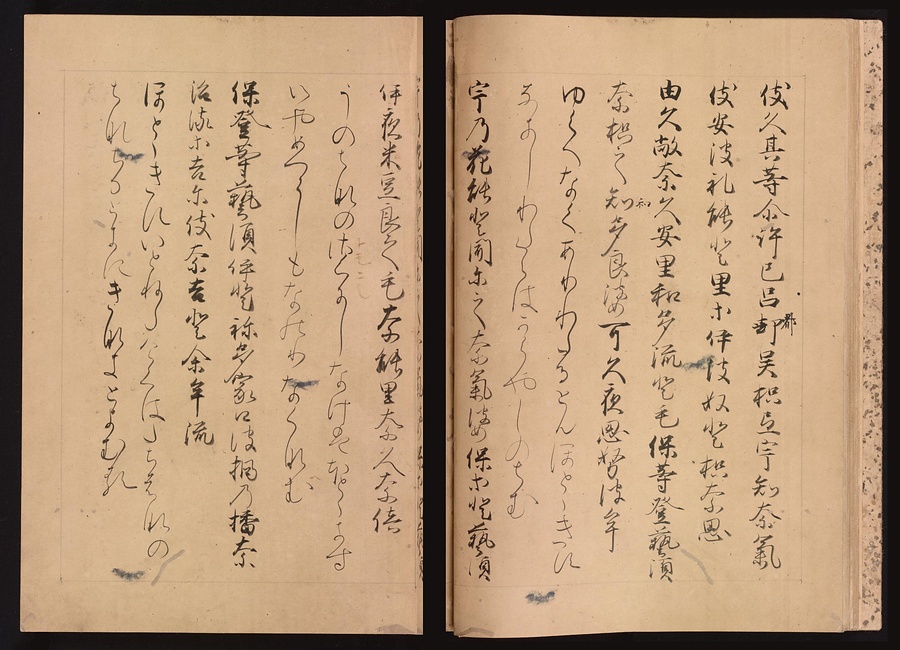 伎久其等尓許己呂却呉枳弖宇知奈氣
都
伎安波礼能登里等伊波奴登枳奈思
由久敝奈久安里和多流登毛保等登藝須
奈枳之知多良婆可久夜思努波牟
和
ゆくへなくありわたるともほとゝきす
なきしわたらはかくやしのはむ
宇乃花能登聞尓之奈氣婆保等登藝須
伊夜米豆良之毛奈能里奈久奈倍
うのはなのさくにしなけはほとゝきす
いやめつらしもなのりなくなへ
保登等藝須伊登祢多家口波橘乃播奈
治流等吉尓伎奈吉登余牟流
ほとゝきすいとねたけくはたちはなの
はなちるときにきなきとよむる